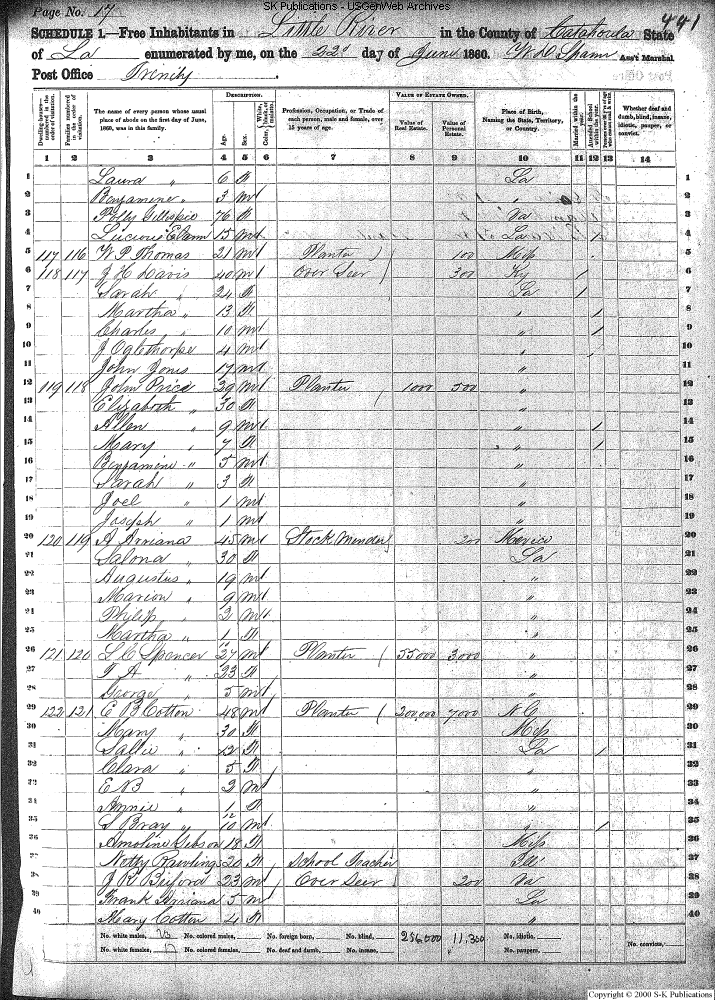 SK Publications - USGenWeb Archives
Page No. 17
441
SCHEDULE 1.—Free Inhabitants in Little River in the County of Catahoula State
of La enumerated by me, on the 22d day of June 1860. W D Spann Ass't Marshal
Post Office Trinity
Dwelling-houses—numbered in the order of visitation.
Families numbered in the order of visitation.
The name of every person whose usual place of abode on the first day of June, 1860, was in this family.
DESCRIPTION.
Age.
Sex.
Color, White, black, or mulatto.
Profession, Occupation, or Trade of each person, male and female, over 15 years of age.
VALUE OF ESTATE OWNED.
Value of Real Estate.
Value of Personal Estate.
Place of Birth, Naming the State, Territory, or Country.
Married within the year.
Attended School within the year.
Whether deaf and dumb, blind, insane, idiotic, pauper, or convict.
1 2 3 4 5 6 7 8 9 10 11 12 13 14
1 Laura " 6 f La 1
2 Benjamine " 3 m " 2
3 Polly Gillespie 76 f Va 3
4 15 m La / 4
5 117 116 W P Thomas 21 m Planter 100 Miss 5
6 118 117 J H Davis 40 m Over Seer 300 Ky / 6
7 Sarah " 24 f La / 7
8 Martha " 13 f " / 8
9 Charles " 10 m " / 9
10 J Oglethorpe 4 m " 10
11 John Jones 17 m " 11
12 119 118 John Price 39 m Planter 1000 500 " 12
13 Elizabeth " 30 f " 13
14 Allen " 9 m " / 14
15 Mary " 7 f " / 15
16 Benjamine " 5 m " 16
17 Sarah " 3 f " 17
18 Joel " 1 m " 18
19 Joseph " 1 m " 19
20 120 119 A Arriana 45 m Stock Minder 200 Mexico 20
21 Salona " 30 f La 21
22 Augustus " 19 m " 22
23 Marion " 9 m " 23
24 Philip " 2 m " 24
25 Martha " 1 f " 25
26 121 120 L C Spencer 27 m Planter 55000 3000 " 26
27 T A " 23 f " 27
28 George " 5 m " 28
29 122 121 E B Cotton 48 m Planter 200,000 7000 N C 29
30 Mary " 30 f Miss 30
31 Sallie " 12 f La / 31
32 Clara " 5 f " 32
33 E B " 2 m " 33
34 Annie " 1 f " 34
35 S Bray " 10 m " / 35
36 Amoline Gibson 18 f Miss 36
37 Netty Rawlings 20 f School Teacher Ill 37
38 J R Buford 23 m Over Seer 200 Va 38
39 Frank Arriana 5 m La 39
40 Mary Cotton 4 f " 40
No. white males, 23 No. colored males, No. foreign born, No. blind, 256000 11,300 No. idiotic, No. convicts,
No. white females, 17 No. colored females, No. deaf and dumb, No. insane, No. paupers,
Copyright © 2000 S-K Publications